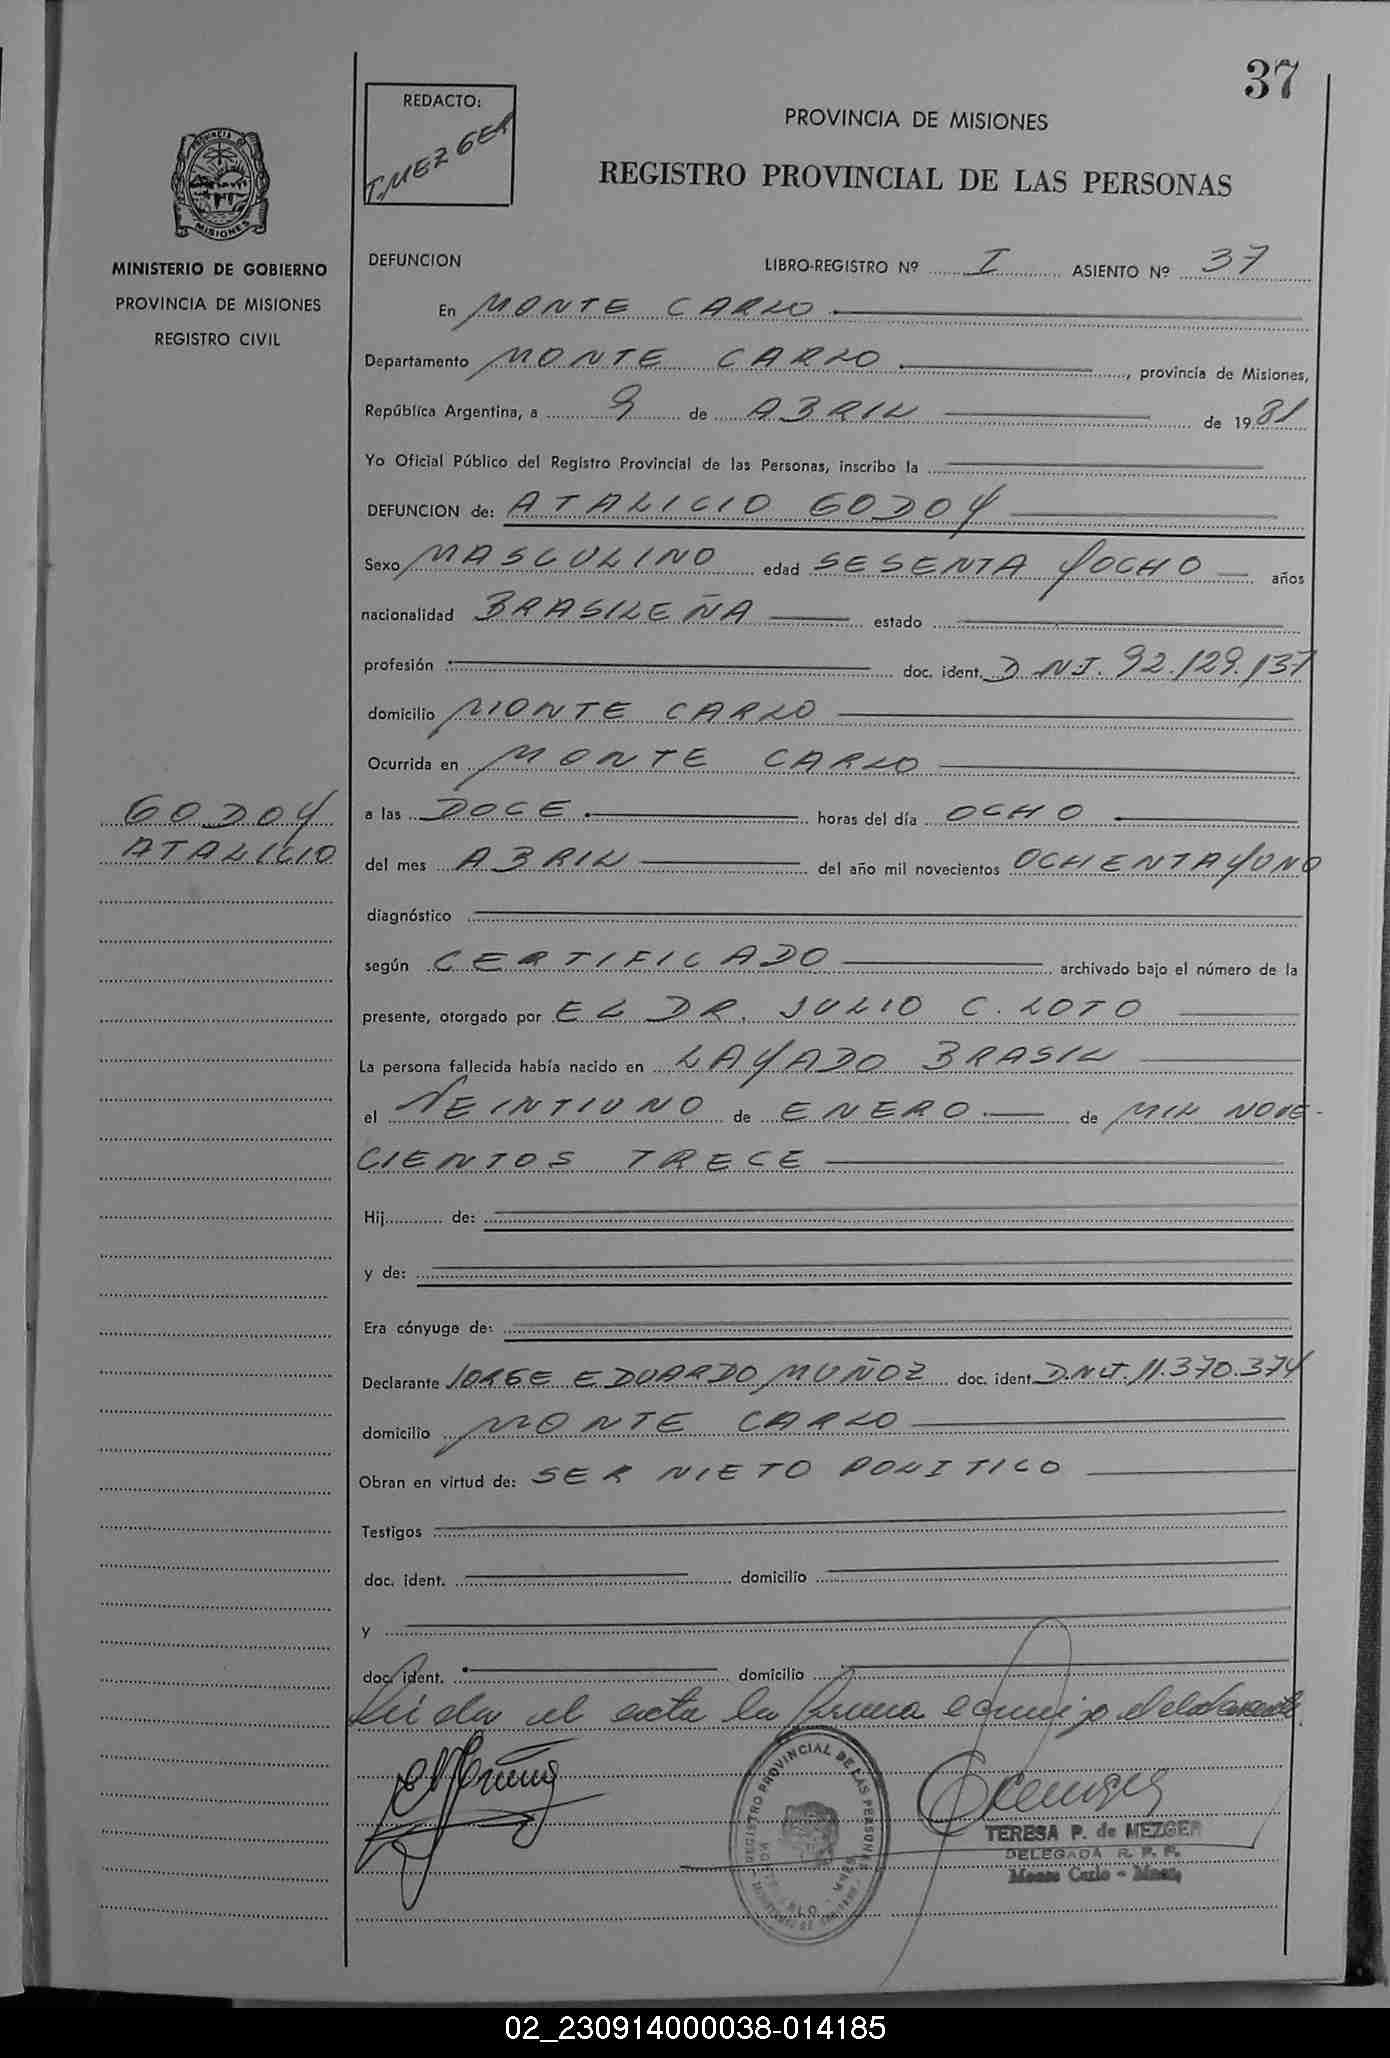 37
REDACTO:
T. MEZGER
PROVINCIA DE MISIONES
REGISTRO PROVINCIAL DE LAS PERSONAS
PROVINCIA DE
MISIONES
MINISTERIO DE GOBIERNO
PROVINCIA DE MISIONES
REGISTRO CIVIL
DEFUNCION LIBRO-REGISTRO Nº I ASIENTO Nº 37
En MONTE CARLO
Departamento MONTE CARLO, provincia de Misiones,
República Argentina, a 9 de ABRIL de 1981
Yo Oficial Público del Registro Provincial de las Personas, inscribo la
DEFUNCION de: ATALICIO GODOY
Sexo MASCULINO edad SESENTA Y OCHO años
nacionalidad BRASILEÑA estado
profesión doc. ident. D.N.I. 92.129.137
domicilio MONTE CARLO
Ocurrida en MONTE CARLO
GODOY
ATALICIO
a las DOCE horas del día OCHO
del mes ABRIL del año mil novecientos OCHENTA Y UNO
diagnóstico
según CERTIFICADO archivado bajo el número de la
presente, otorgado por EL DR. JULIO C. LOTO
La persona fallecida había nacido en LAYADO BRASIL
el VEINTIUNO de ENERO de MIL NOVE-
CIENTOS TRECE
Hij de:
y de:
Era cónyuge de:
Declarante JORGE EDUARDO MUÑOZ doc. ident. D.N.I. 11.370.374
domicilio MONTE CARLO
Obran en virtud de: SER NIETO POLITICO
Testigos
doc. ident. domicilio
y
doc. ident. domicilio
Leída el acta la firma conmigo el declarante
REGISTRO PROVINCIAL DE LAS PERSONAS
TERESA P. de MEZGER
DELEGADA R. P. P.
Monte Carlo - Mnes.
02_230914000038-014185